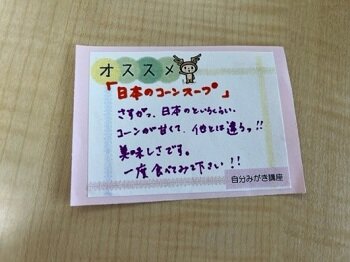 オススメ
「日本のコーンスープ」
さすがっ、日本のというくらい、
コーンが甘くて、他とは違うっ!!
美味しさです。
一度食べてみて下さい!!
自分みがき講座